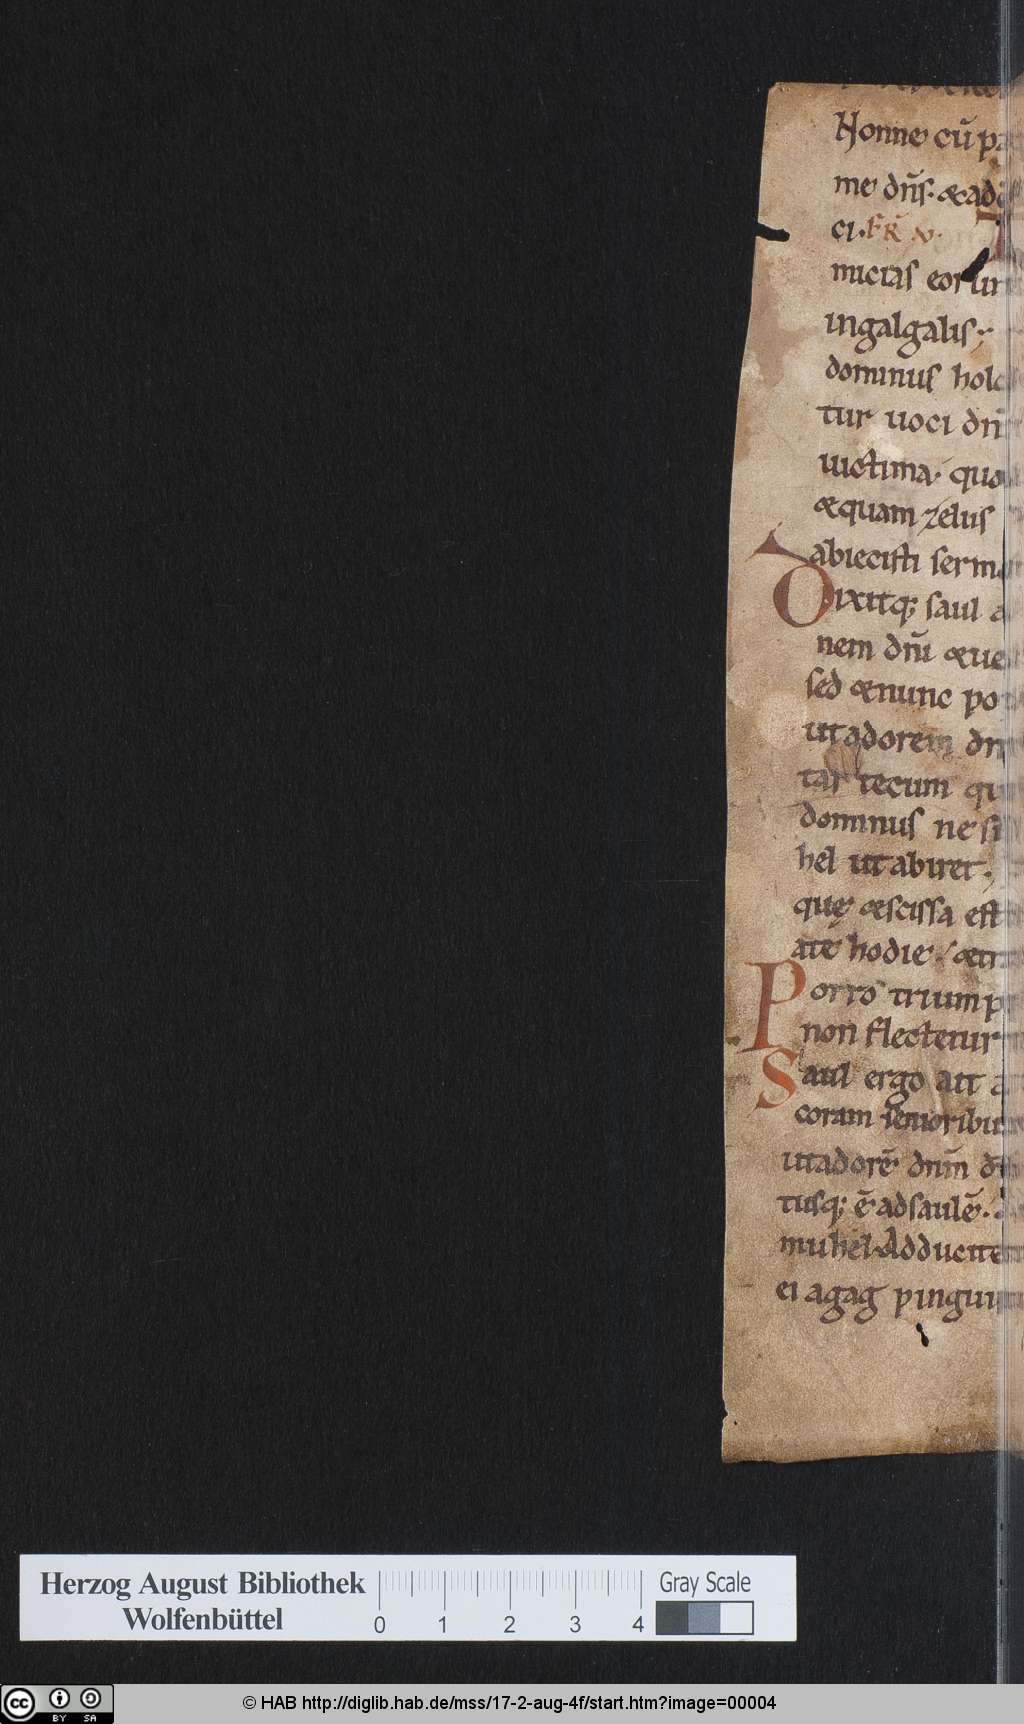 Honne cū pa
me dn̄s· & ad
ci· FR̄ V·
micias eor un
ingalgalis;
dominus holo
tur uoci dn̄
uictima· quo
&quam zelus
abiecisti serm
Dixitq; saul a
nem dn̄i &ue
sed &nunc por
ut adorem dn̄
tar tecum qu
dominus ne si
hel ut abiret·
quę &scissa est
a te hodie· &tr
Porro triump
non flectetur
Saul ergo ait
coram senioribus
ut adorē dnm̄ d
tusq; ē ad saulē·
muhel Adducite
ei agag pinguis
Herzog August Bibliothek
Wolfenbüttel
0 1 2 3 4
Gray Scale
cc BY SA
© HAB http://diglib.hab.de/mss/17-2-aug-4f/start.htm?image=00004